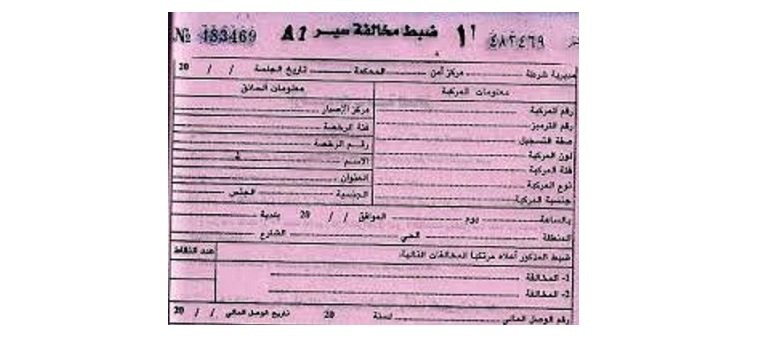 № 483469 A1 ضبط مخالفة سير أ١ ٤٨٣٤٦٩
مديرية شرطة مركز أمن المحكمة تاريخ الجلسة / / 20
معلومات المركبة معلومات السائق
رقم المركبة مركز الإصدار
رقم الترميز فئة الرخصة
صفة التسجيل رقم الرخصة
لون المركبة الاسم
فئة المركبة العنوان
نوع المركبة الجنسية الجنس
جنسية المركبة
بالساعة يوم الموافق / / 20 بلدية
المنطقة الحي الشارع
ضبط المذكور أعلاه مرتكبا المخالفات التالية: عدد النقاط
1- المخالفة
2- المخالفة
رقم الوصل المالي لسنة 20 تاريخ الوصل المالي / / 20